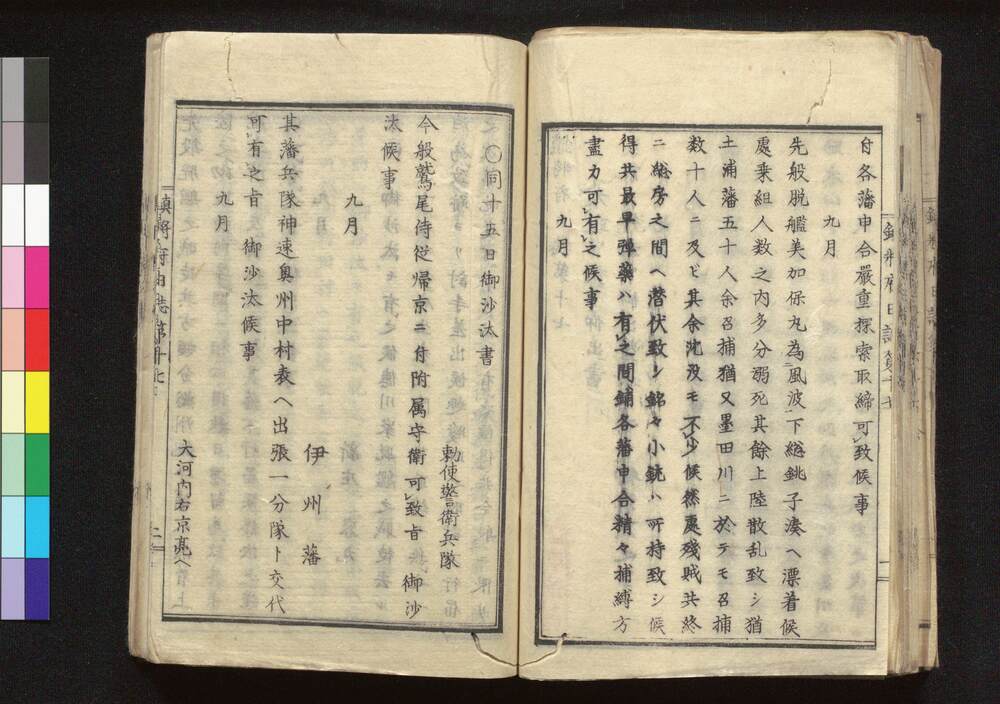 自各藩申合嚴重探索取締可致候事
九月
先般脱艦美加保丸為風波下総銚子湊ヘ漂着候
處乗組人数之内多分溺死其餘上陸散乱致シ猶
土浦藩五十人余召捕猶又墨田川ニ於テモ召捕
数十人ニ及ビ其余沈没モ不少候然處残賊共終
ニ総房之間ヘ潜伏致シ銘々小銃ハ所持致シ候
得共最早弾薬ハ有之間鋪各藩申合精々捕縛方
盡力可有之候事
九月
〇同十五日御沙汰書
勅使警衛兵隊
今般鷲尾侍従帰京ニ付附属守衛可致旨 御沙
汰候事
九月
伊州藩
其藩兵隊神速奥州中村表ヘ出張一分隊ト交代
可有之旨 御沙汰候事
九月
大河内右京亮ヘ
鎮将府日誌第十七
二
鎮将府日誌第十七